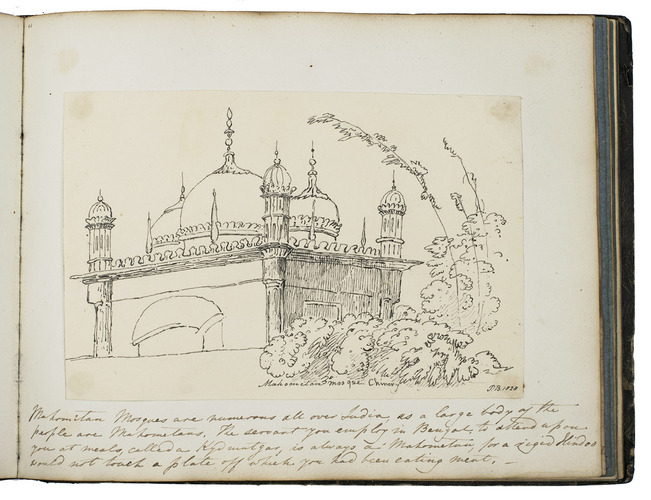 Mahometan mosque
P.B. 1830
Mahometan Mosques are numerous all over India, as a large body of the
people are Mahometans, The servant you employ in Bengal, to attend upon
you at meals, called a is always a Mahometan, for a riged Hindoo
would not touch a plate off which you had been eating meat, –